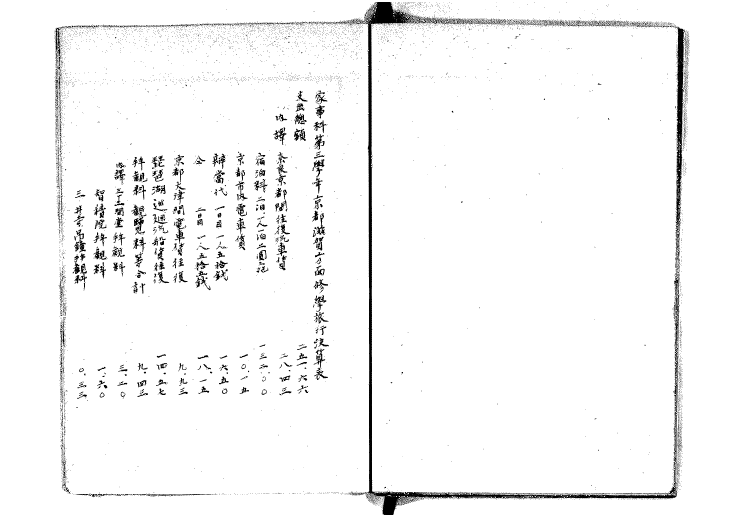 家事科第三學年京都滋賀方面修學旅行決算表
支出總額 二五一.六六
内譯 奈良京都間往復汽車賃 二八.四三
宿泊料 二泊一人一泊二圓 一三二.〇〇
京都市内電車賃 一〇.一五
辨當代 一日目一人五拾錢 一六.五〇
仝 二日目一人五拾五錢 一八.一五
京都大津間電車賃往復 九.九三
琵琶湖巡廻汽船賃往復 一四.五七
拜觀料 觀覽料等合計 九.四三
内譯 三十三間堂拜觀料 三.二〇
智積院拜觀料 一.六〇
三井寺吊鐘拜觀料 〇.三三